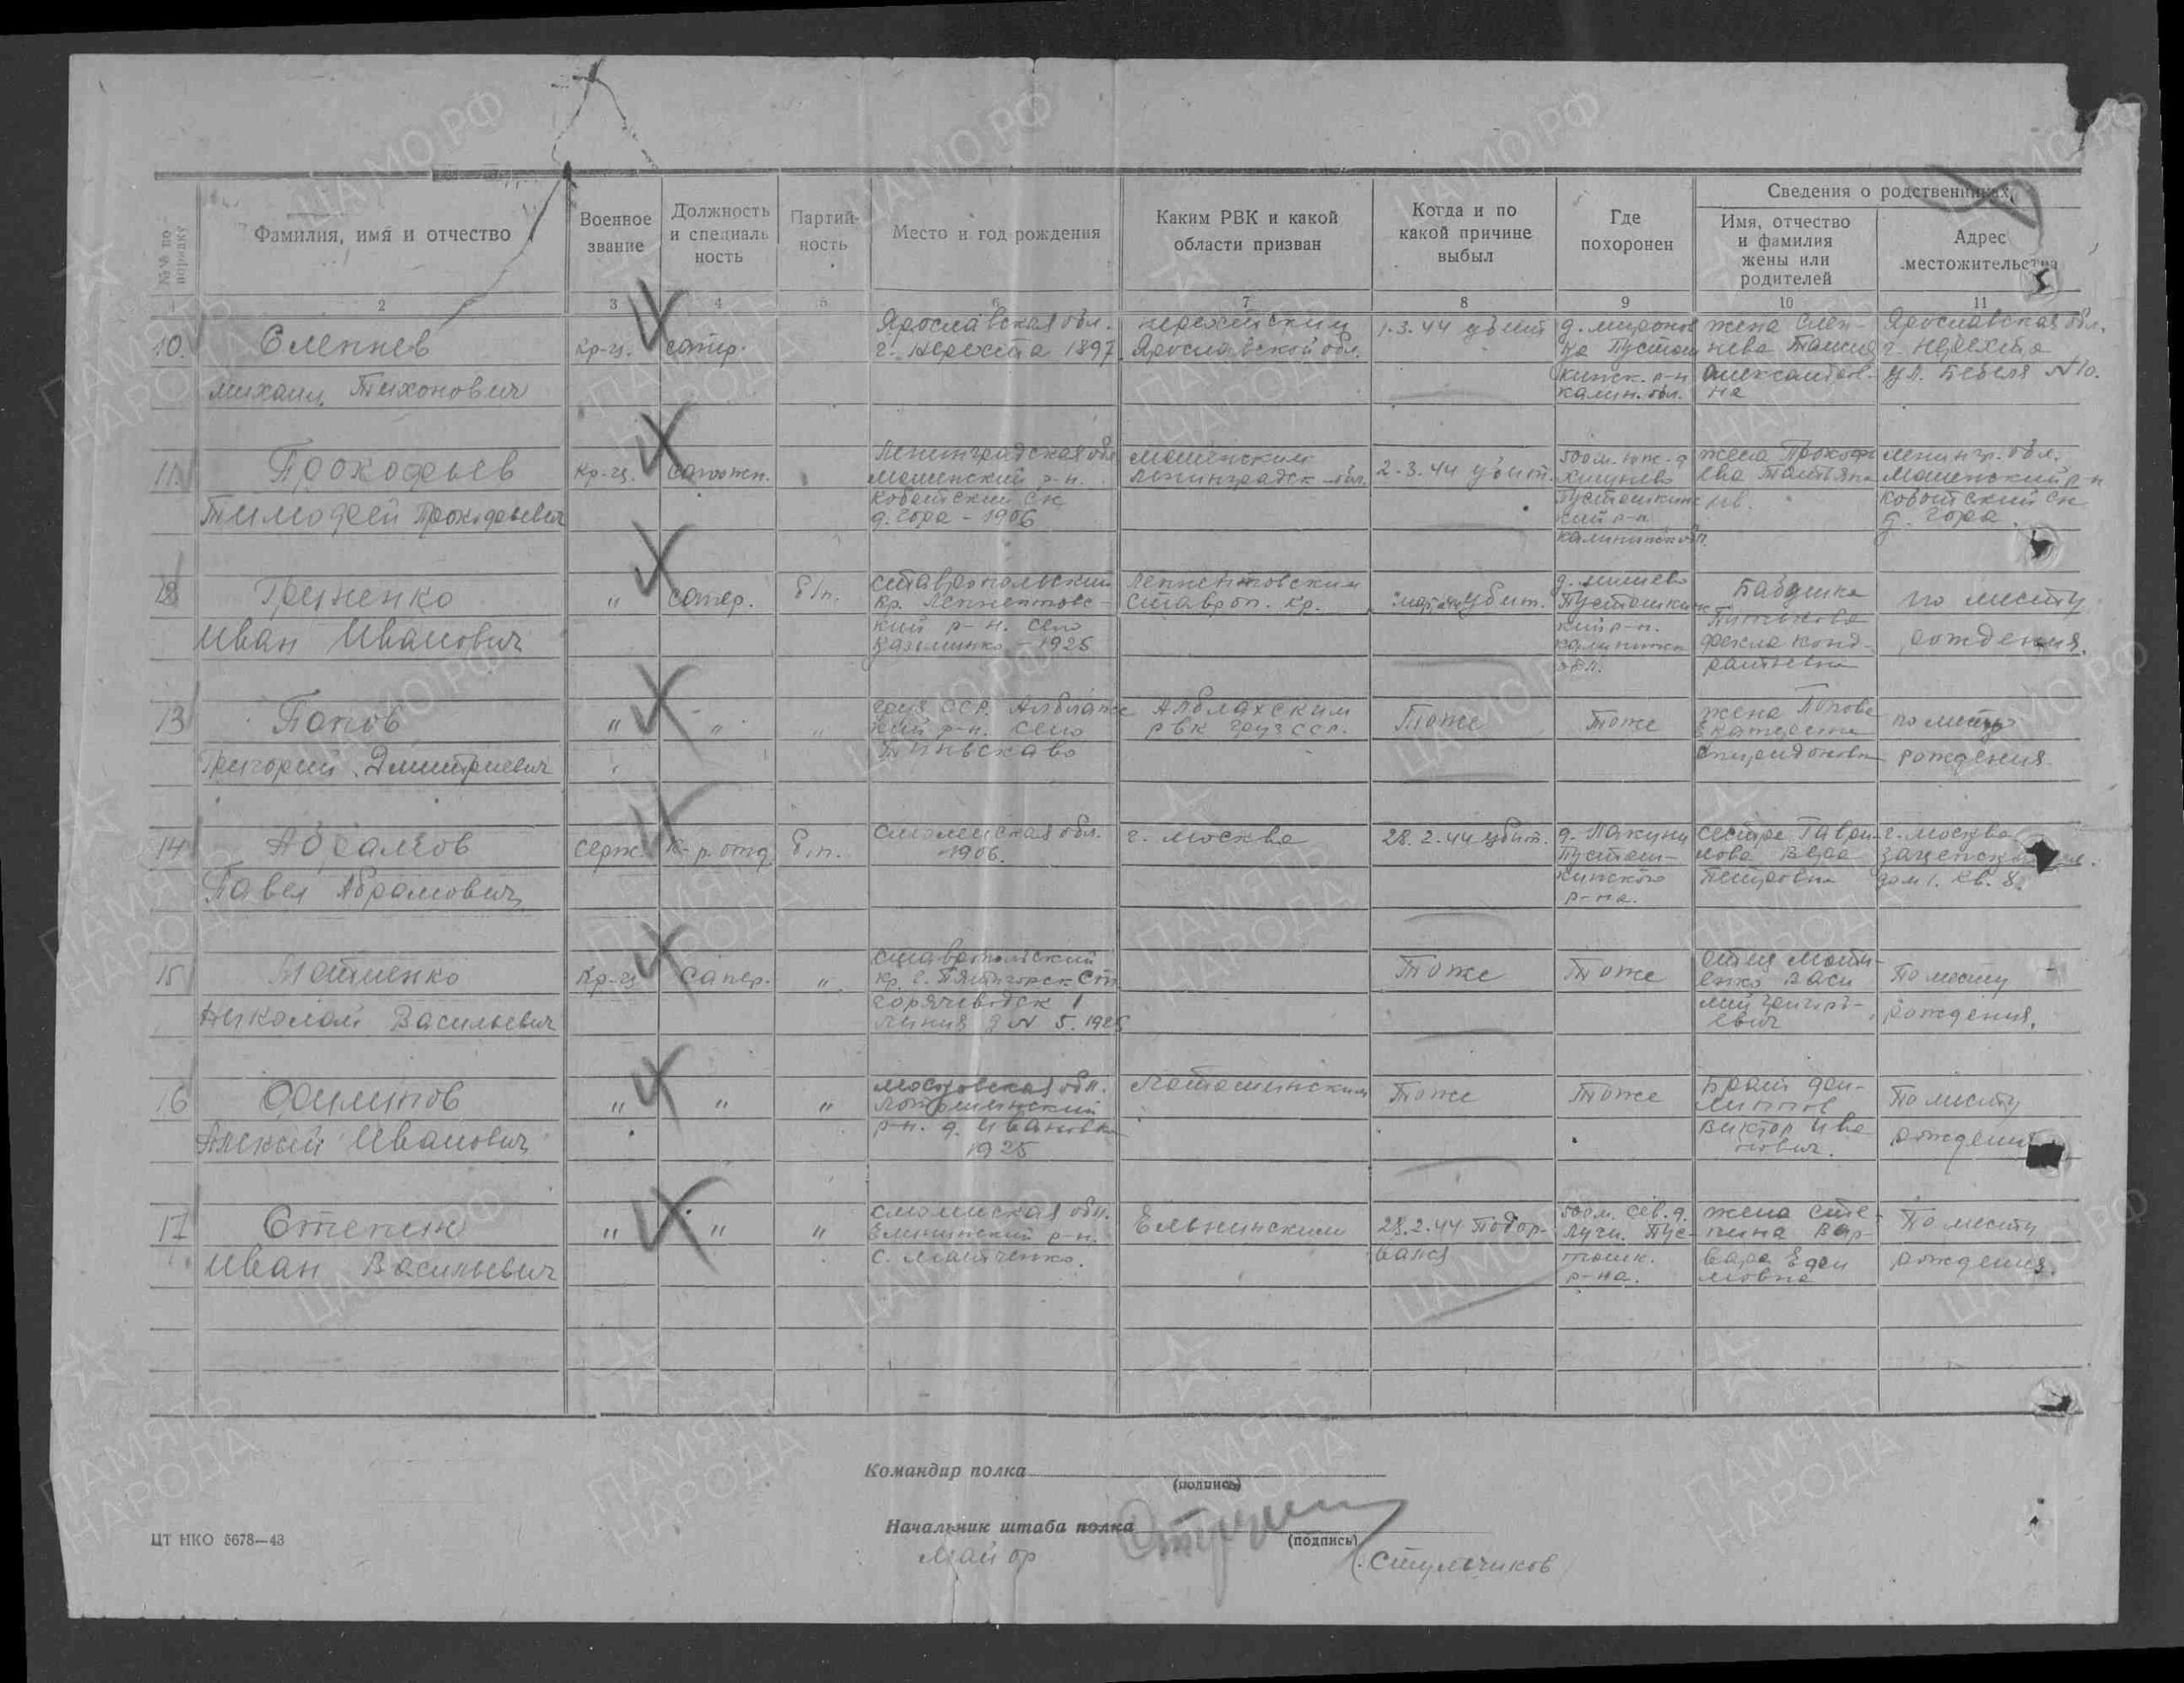 Сведения о родственниках
№№ по порядку
Фамилия, имя и отчество
Военное звание
Должность и специаль ность
Партий- ность
Место и год рождения
Каким РВК и какой области призван
Когда и по какой причине выбыл
Где похоронен
Имя, отчество и фамилия жены или родителей
Адрес местожительства
2 3 4 5 6 7 8 9 10 11
10.
Слепнев
Михаил Тихонович
кр-ц.
сапер.
Ярославская обл.
г. Нерехта 1897
Нерехтским
Ярославской обл.
1.3.44 убит
д. Миронов
ка Пустош
кинск. р-н
калин. обл.
жена Слеп-
нева Таисия
Александров-
на
Ярославская обл.
г. Нерехта
ул. Бебеля №10.
11.
Прокофьев
Тимофей Прокофьевич
кр-ц.
сапожн.
Ленинградская обл
Мошенский р-н.
д. Гора - 1906
Мошенским
Ленинградск обл.
2.3.44 убит.
500 м. юж. д
Пустошкинс
кий р-н.
жена Прокофь
ева Татьяна
Ив.
Ленингр. обл.
Мошенский р-н
д. Гора.
Гриненко
Иван Иванович
"
сапер.
б/п.
Ставропольский
кр.
кий р-н. село
1925
Ставроп. кр.
убит.
Пустошкинс
кий р-н.
обл.
Бабушка
Фекла Конд-
ратьевна
по месту
рождения.
13
Попов
Григорий Дмитриевич
"
"
"
груз ССР.
кий р-н. село
рвк груз сср.
Тоже
Тоже
жена Попова
Екатерина
Спиридоновн
по месту
рождения
14
Абрамов
Павел Абрамович
серж.
к-р. отд.
б/п.
Смоленская обл.
1906.
г. Москва
28.2.44 убит.
Пустош-
кинского
р-на.
сестра Гаври-
лова Вера
Петровна
г. Москва
дом 1. кв. 8.
15
Матиенко
Николай Васильевич
кр-ц
сапер.
"
Ставропольский
кр. г. Пятигорск ст
Горячеводск 1
линия д № 5. 1925
Тоже
Тоже
отец Мати-
енко Васи
лий Григорь-
евич
По месту
рождения.
16
Филиппов
Алексей Иванович
"
"
"
Московская обл.
Лотошинский
р-н. д. Ивановка
1925
Лотошинским
Тоже
Тоже
брат Фи-
липпов
Виктор Ива
нович.
По месту
рождения
17
Степин
Иван Васильевич
"
"
"
Смоленская обл.
Ельнинский р-н.
Ельнинским
28.2.44 Подор-
вался
500 м. сев. д.
Лучи. Пус-
тошк.
р-на.
жена Сте-
пина Вар-
вара Ефи
мовна
По месту
рождения.
Командир полка
(подпись)
Начальник штаба полка
(подпись)
Майор
(Стульчиков
ЦТ НКО 5678—43
ЦАМО РФ
ПАМЯТЬ НАРОДА